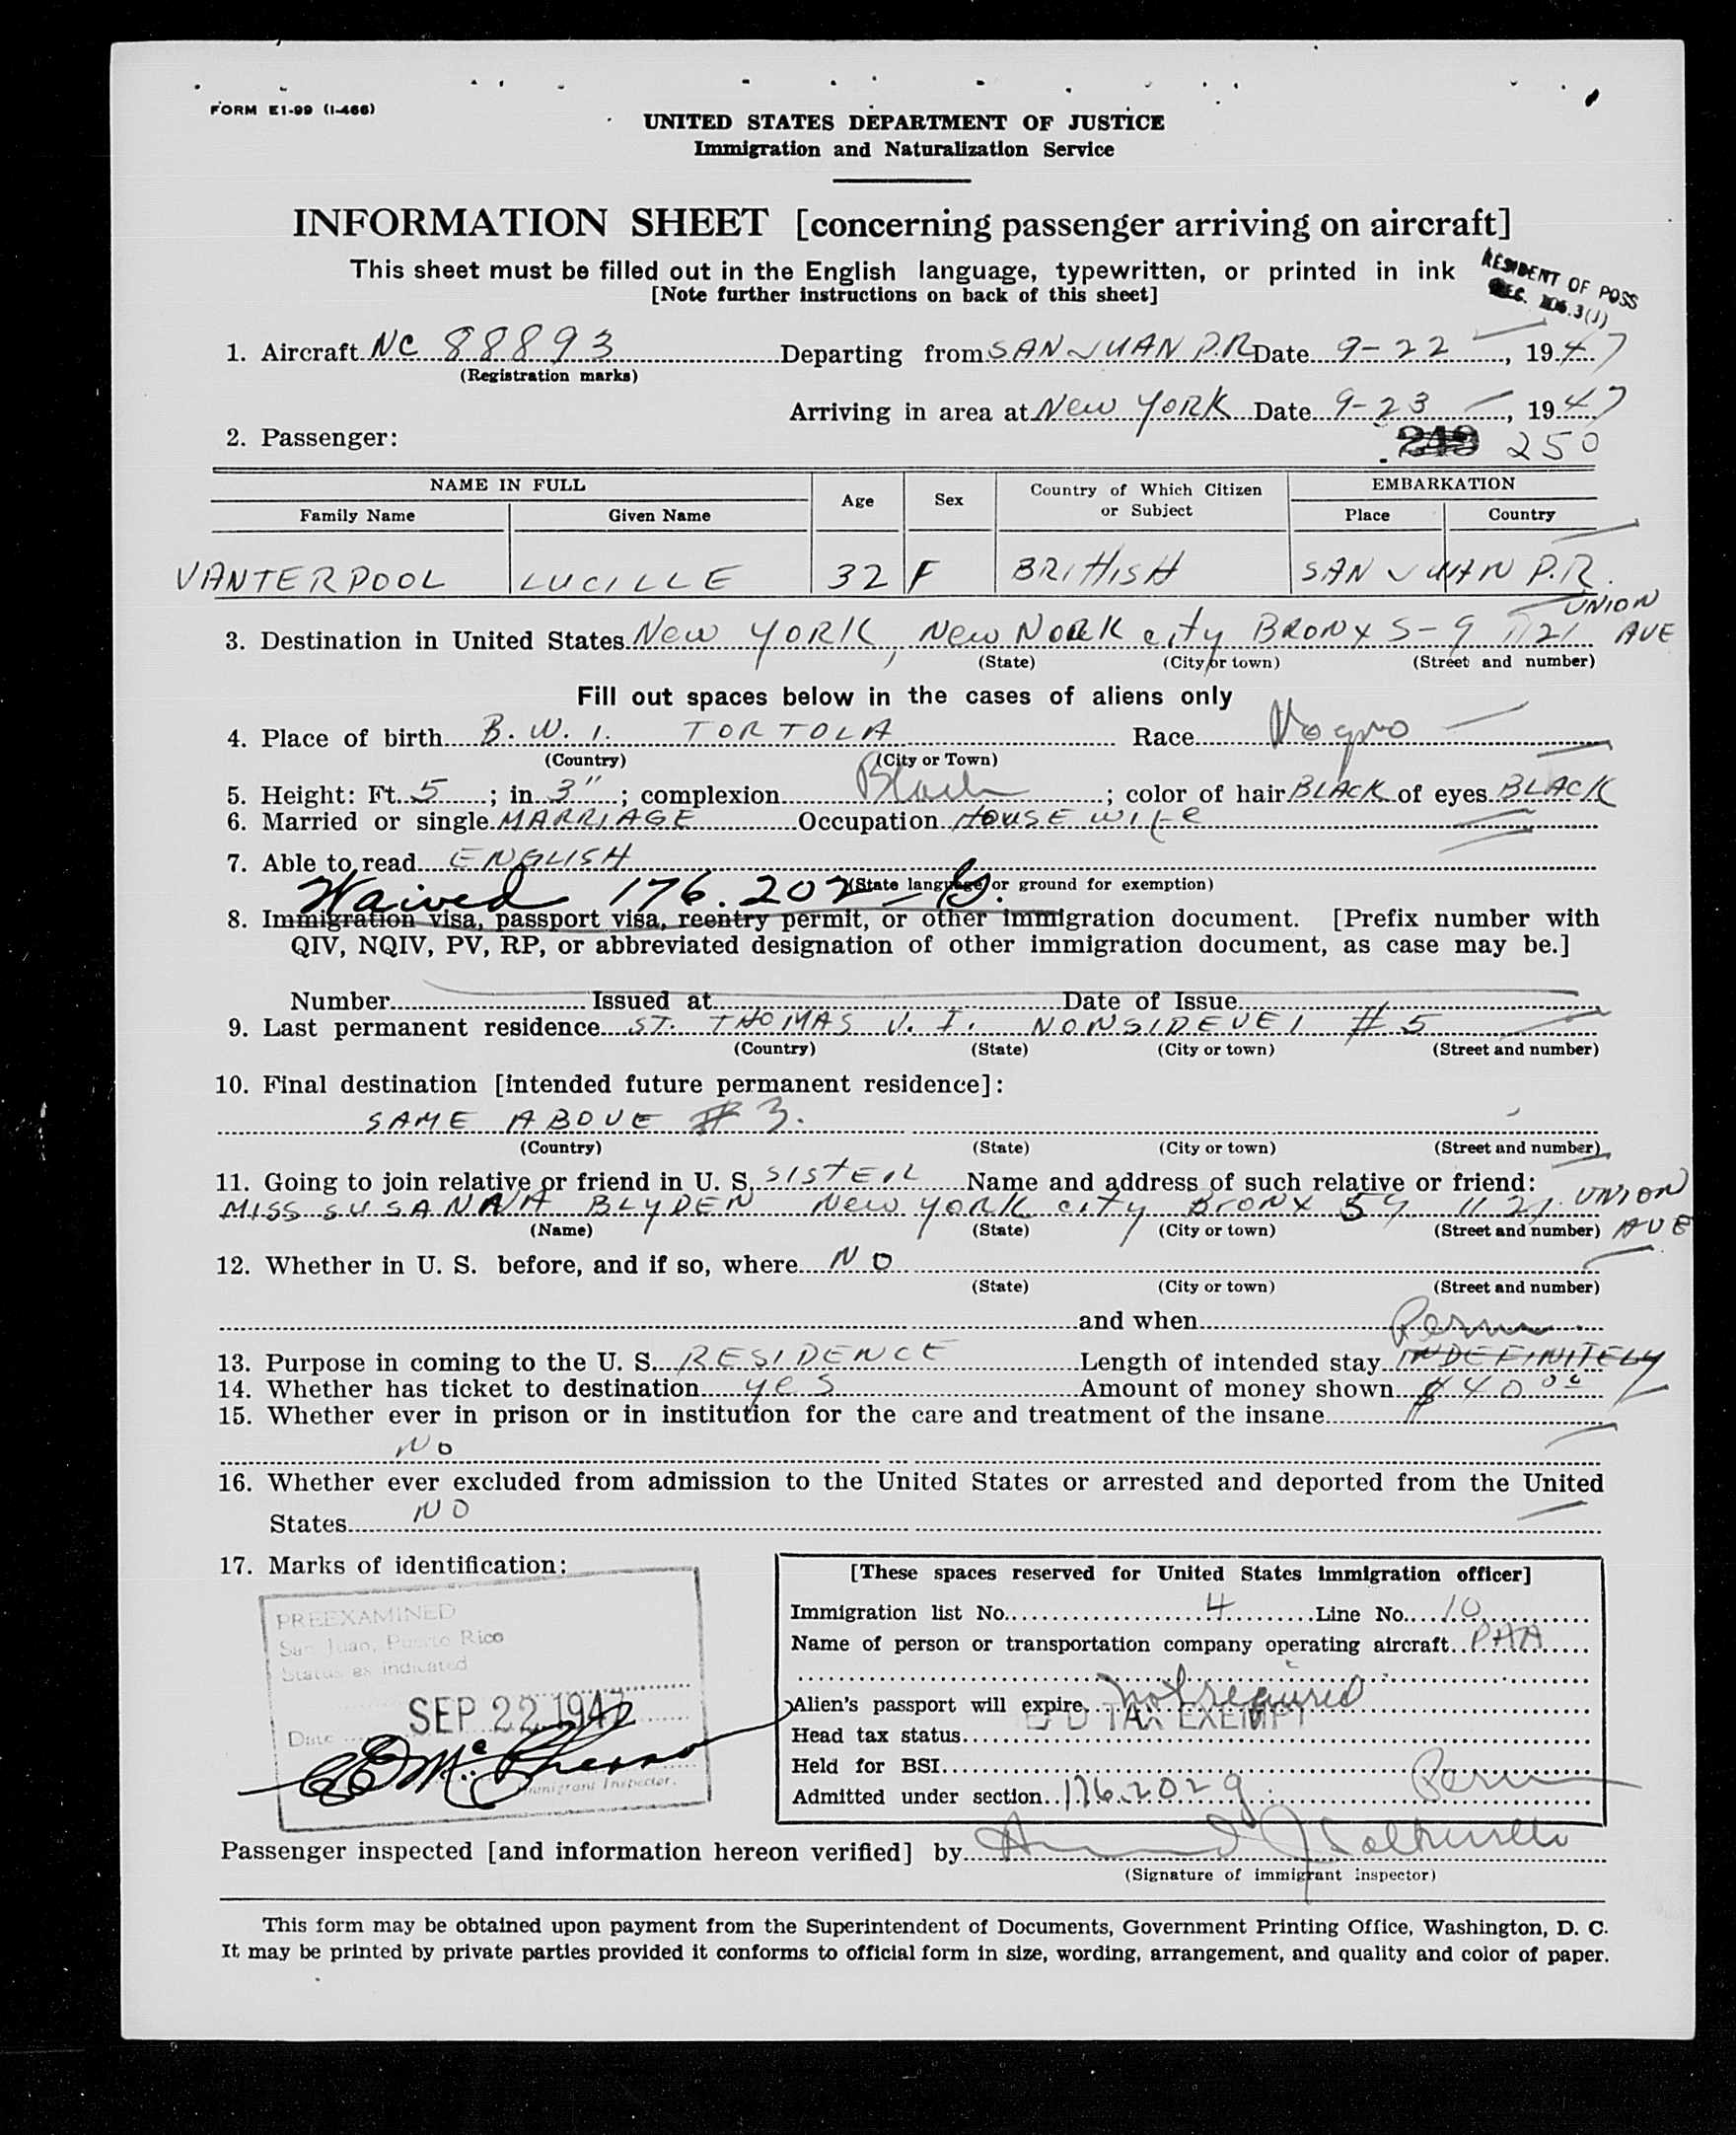 FORM E1-99 (I-466)
UNITED STATES DEPARTMENT OF JUSTICE
Immigration and Naturalization Service
INFORMATION SHEET [concerning passenger arriving on aircraft]
This sheet must be filled out in the English language, typewritten, or printed in ink
[Note further instructions on back of this sheet]
RESIDENT OF POSS
SEC. 106.3(J)
1. Aircraft NC 88893 Departing from SAN JUAN P.R Date 9-22, 1947
(Registration marks)
Arriving in area at New YORK Date 9-23, 1947
2. Passenger:
249 250
NAME IN FULL Age Sex Country of Which Citizen or Subject EMBARKATION
Family Name Given Name Place Country
VANTERPOOL LUCILLE 32 F BRITISH SAN JUAN P.R.
3. Destination in United States New YORK, New NORK city BRONX S-9 1121 UNION AVE
(State) (City or town) (Street and number)
Fill out spaces below in the cases of aliens only
4. Place of birth B.W.I. TORTOLA Race Negro
(Country) (City or Town)
5. Height: Ft. 5; in. 3"; complexion Black; color of hair BLACK of eyes BLACK
6. Married or single MARRIAGE Occupation HOUSE wife
7. Able to read ENGLISH
(State language or ground for exemption)
Waived 176.202-G.
8. Immigration visa, passport visa, reentry permit, or other immigration document. [Prefix number with
QIV, NQIV, PV, RP, or abbreviated designation of other immigration document, as case may be.]
Number Issued at Date of Issue
9. Last permanent residence ST. THOMAS V.I. NONSIDEVEI # 5
(Country) (State) (City or town) (Street and number)
10. Final destination [intended future permanent residence]:
SAME ABOVE # 3.
(Country) (State) (City or town) (Street and number)
11. Going to join relative or friend in U. S. SISTER Name and address of such relative or friend:
MISS SUSANNA BLYDEN New YORK city BRONX 59 1121 UNION AVE
(Name) (State) (City or town) (Street and number)
12. Whether in U. S. before, and if so, where NO
(State) (City or town) (Street and number)
and when
Perm
13. Purpose in coming to the U. S. RESIDENCE Length of intended stay INDEFINITELY
14. Whether has ticket to destination yes Amount of money shown $ 40 00
15. Whether ever in prison or in institution for the care and treatment of the insane
No
16. Whether ever excluded from admission to the United States or arrested and deported from the United
States NO
17. Marks of identification:
PREEXAMINED
San Juan, Puerto Rico
Status as indicated
Date SEP 22 1947
Immigrant Inspector.
[These spaces reserved for United States immigration officer]
Immigration list No. 4 Line No. 10
Name of person or transportation company operating aircraft PAA
Alien's passport will expire not required
Head tax status TAX EXEMPT
Held for BSI
Admitted under section 176.202g Perm
Passenger inspected [and information hereon verified] by
(Signature of immigrant inspector)
This form may be obtained upon payment from the Superintendent of Documents, Government Printing Office, Washington, D. C.
It may be printed by private parties provided it conforms to official form in size, wording, arrangement, and quality and color of paper.